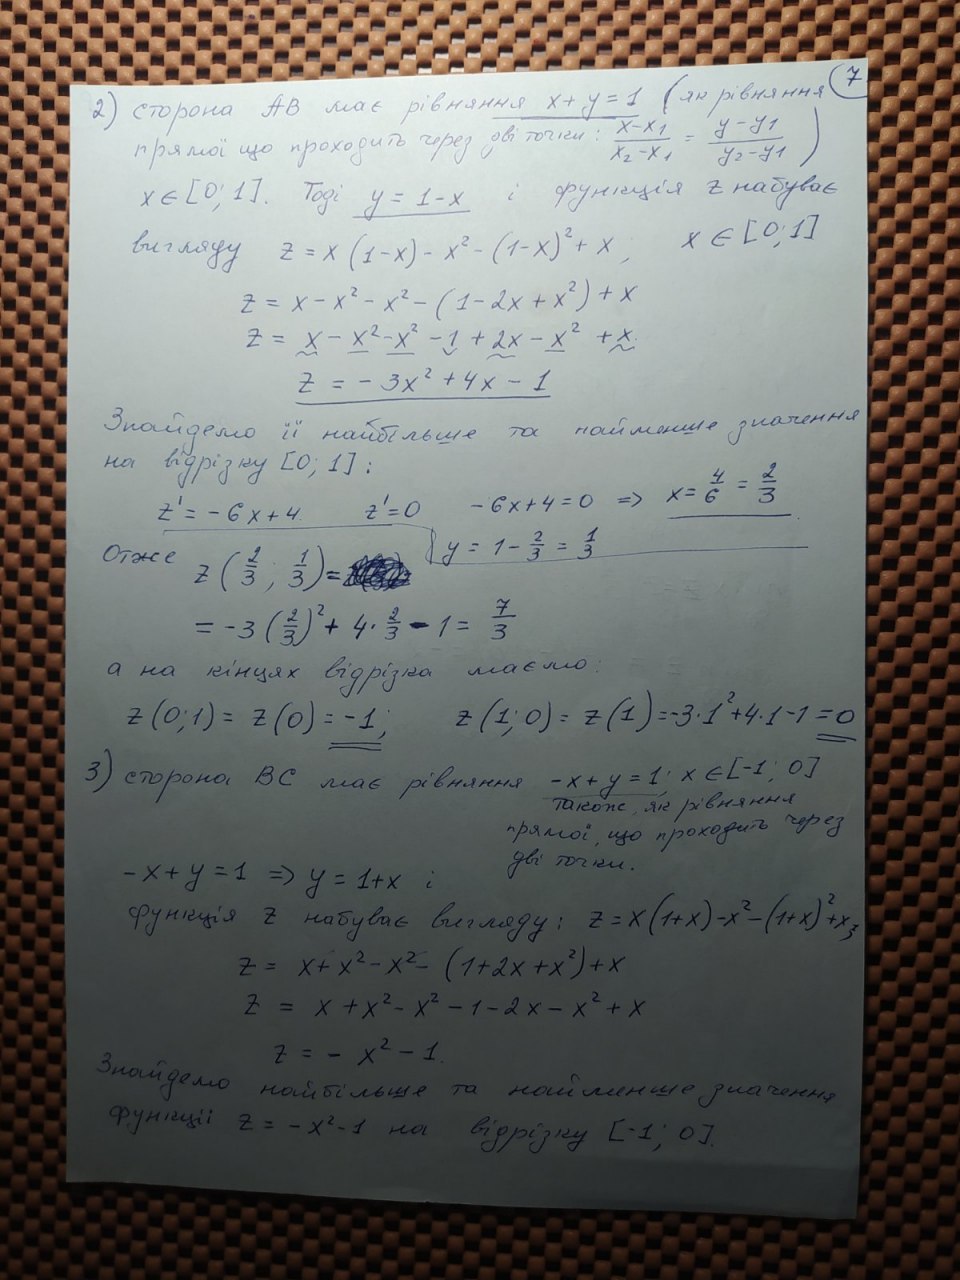 7
2) сторона AB має рівняння x+y=1 (як рівняння
прямої що проходить через дві точки: (x-x₁)/(x₂-x₁) = (y-y₁)/(y₂-y₁))
x∈[0;1]. Тоді y=1-x і функція z набуває
вигляду z=x(1-x)-x²-(1-x)²+x, x∈[0;1]
z=x-x²-x²-(1-2x+x²)+x
z=x-x²-x²-1+2x-x²+x.
z=-3x²+4x-1
Знайдемо її найбільше та найменше значення
на відрізку [0;1]:
z'=-6x+4 z'=0 -6x+4=0 => x=4/6=2/3
y=1-2/3=1/3
Отже z(2/3; 1/3)=
=-3(2/3)²+4·2/3-1=7/3
а на кінцях відрізка маємо:
z(0;1)=z(0)=-1; z(1;0)=z(1)=-3·1²+4·1-1=0
3) сторона BC має рівняння -x+y=1; x∈[-1;0]
також, як рівняння
прямої, що проходить через
дві точки.
-x+y=1 => y=1+x і
функція z набуває вигляду: z=x(1+x)-x²-(1+x)²+x;
z=x+x²-x²-(1+2x+x²)+x
z=x+x²-x²-1-2x-x²+x
z=-x²-1.
Знайдемо найбільше та найменше значення
функції z=-x²-1 на відрізку [-1;0].